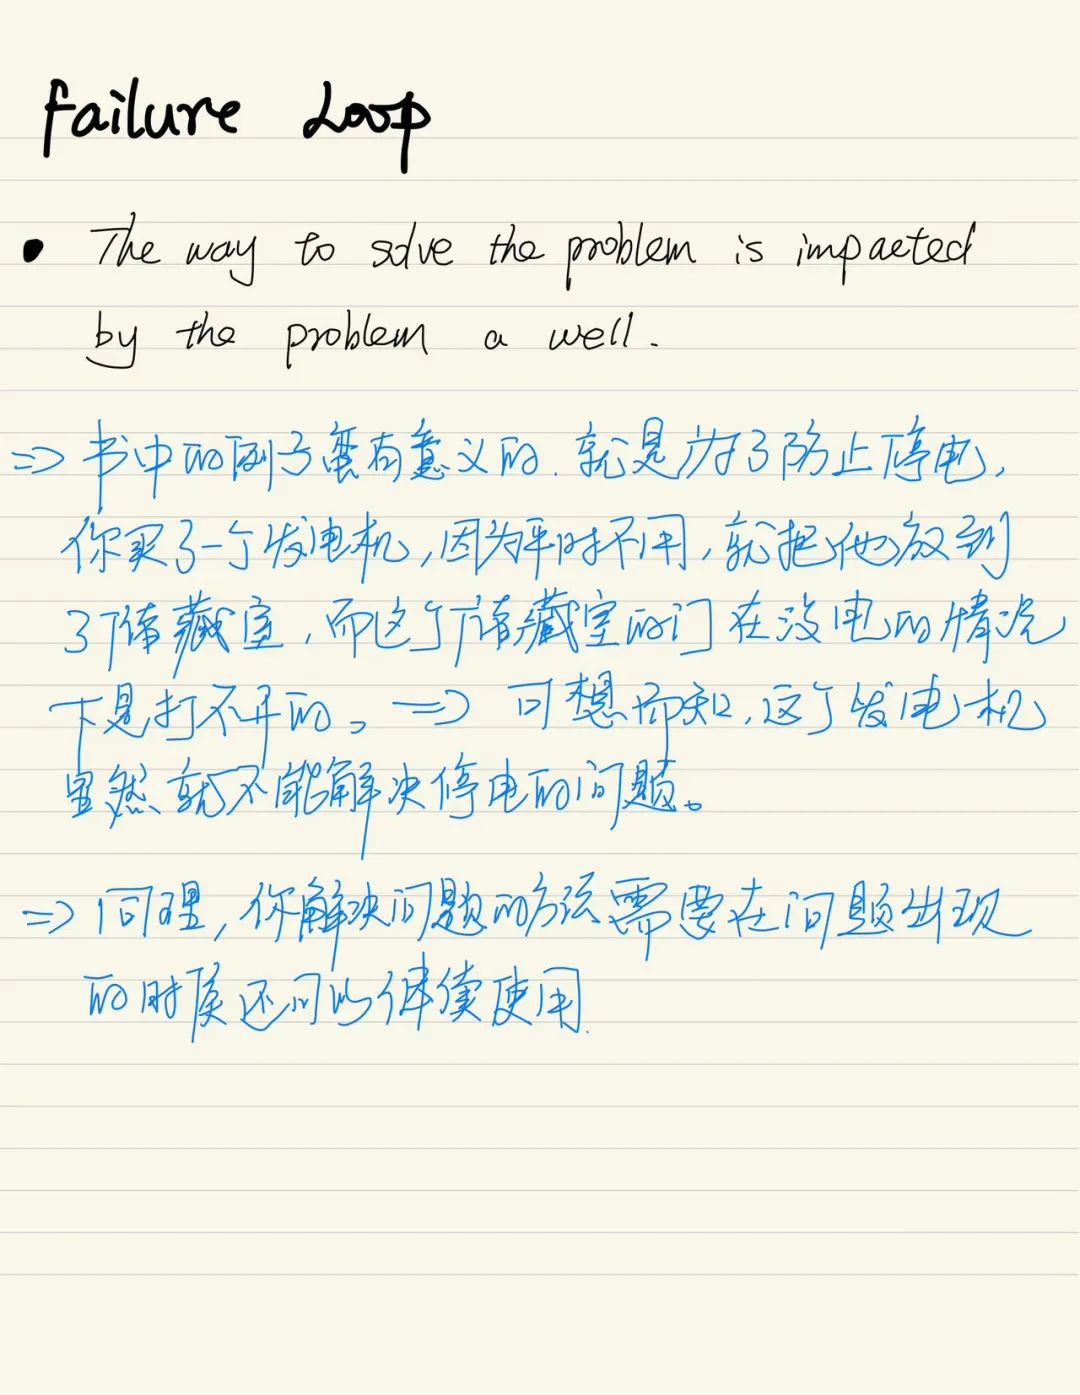 failure Loop
• The way to solve the problem is impacted
by the problem a well.
=> 书中的例子蛮有意义的. 就是为了防止停电,
你买了一个发电机, 因为平时不用, 就把他放到
了储藏室, 而这个储藏室的门在没电的情况
下是打不开的。=> 可想而知, 这个发电机
显然就不能解决停电的问题。
=> 同理, 你解决问题的方法需要在问题出现
的时候还可以继续使用.